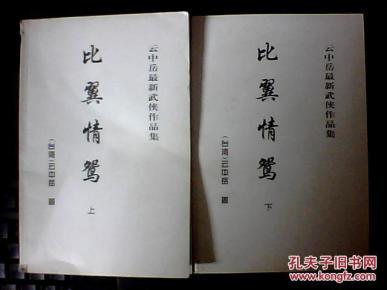 云中岳最新武侠作品集
比翼情鸳
上
(台湾)云中岳 著
云中岳最新武侠作品集
比翼情鸳
下
(台湾)云中岳 著
孔夫子旧书网